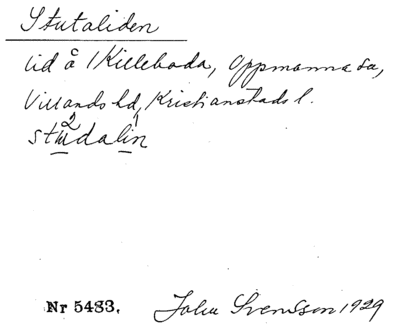 Stutaliden
lid å /Killeboda, Oppmanna sn,
Villands hd, Kristianstads l.
studalin
2 1
Nr 5483. John Svensson 1929